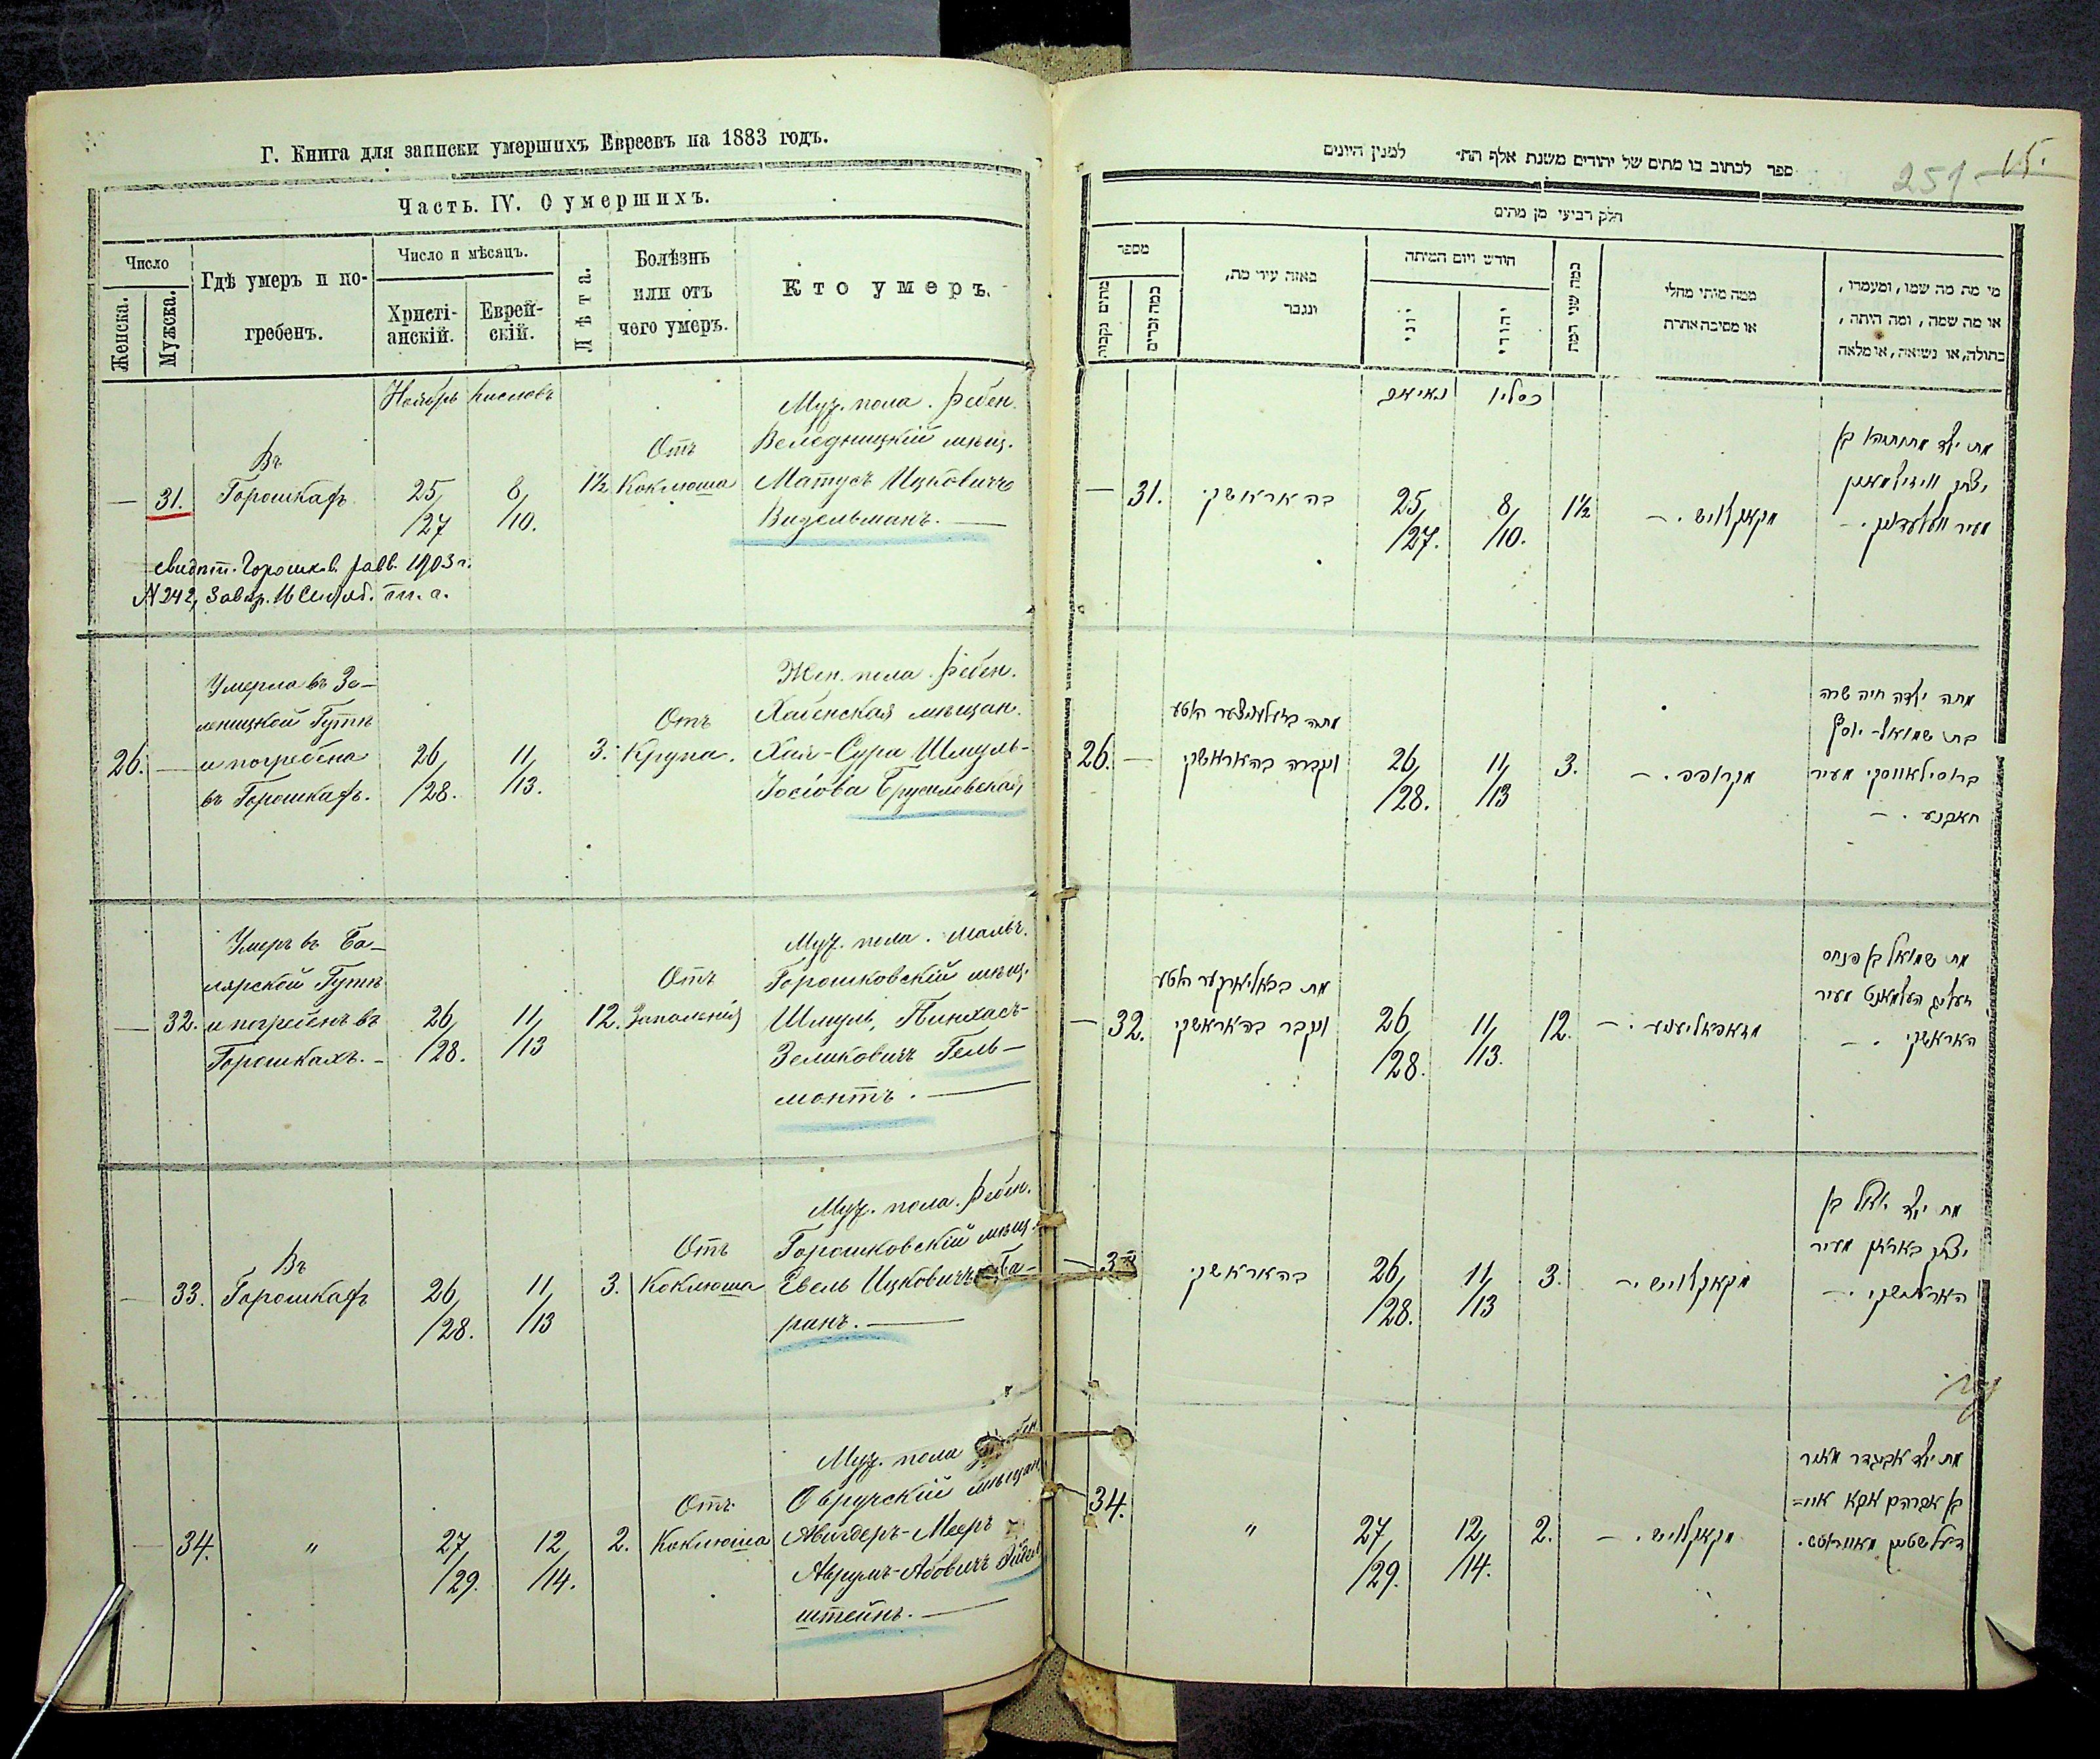 Г. Книга для записки умершихъ Евреевъ на 1883 годъ.
Часть. IV. О умершихъ.
Число
Женска.
Мужска.
Гдѣ умеръ и по-
гребенъ.
Число и мѣсяцъ.
Христі-
анскій.
Еврей-
скій.
Лѣта.
Болѣзнь
или отъ
чего умеръ.
Кто умеръ.
Ноябрь Кислевъ
— 31.
Въ
Горошкахъ
25/27
8/10.
1½
Отъ
Коклюша
Муж. пола. Ребен.
Веледницкій мѣщ.
Матусъ Ицковичъ
Видельманъ. —
свидѣт. Горошков. равв. 1903 г.
N 242,
26. —
Умерла въ Зе-
леницкой Гутѣ
и погребена
въ Горошкахъ.
26/28.
11/13.
3.
Отъ
Крупа.
Жен. пола. Ребен.
мѣщан.
Хая-Сура Шмуль-
Іосіова Брусиловская
— 32.
Умеръ въ Ба-
лярской Гутѣ
и погребенъ въ
Горошкахъ. —
26/28.
11/13
12.
Отъ
Запаленія
Муж. пола. Мальч.
Горошковскій мѣщ.
Шмуль, Пинхасъ-
Зеликовичъ Гель-
монтъ. —
— 33.
Въ
Горошкахъ
26/28.
11/13
3.
Отъ
Коклюша
Муж. пола. Ребен.
Горошковскій мѣщ.
Евель Ицковичъ Ба-
ранъ. —
— 34.
"
27/29.
12/14.
2.
Отъ
Коклюша
Муж. пола
Овручскій мѣщан.
Авигдеръ-Мееръ
Аврумъ-Абовичъ
штейнъ. —
ספר לכתוב בו מתים של יהודים משנת אלף הת״ למנין היונים
251 15.
חלק רביעי מן מתים
מספר
מתים נקבות
כמה זכרים
באזה עיר מת,
ונגבר
חודש ויום המיתה
יוני
יהודי
כמה שני המת
ממה מיתי מחלי
או מסיבה אחרת
מי מת מה שמו, ומעמדו,
או מה שמה, ומה היתה,
בתולה, או נשואה, או מלאה
כסליו
— 31.
בהאראשקי
25/27.
8/10.
1½
מת ילד מתתיהו בן
יצחק ווידילמאן
26. —
ונקברה בהאראשקי
26/28.
11/13
3.
מקרופפ. —
מתה ילדה חיה שרה
בת שמואל-יוסף
ברוסילאווסקי מעיר
— 32.
ונקבר בהאראשקי
26/28.
11/13.
12.
מת שמואל בן פנחס
זעליג העלמאנט מעיר
האראשקי. —
בהאראשקי
26/28.
11/13
3.
מת ילד יואל בן
יצחק באראן מעיר
האראשקי. —
34.
"
27/29.
12/14.
2.
מת ילד אביגדר מאיר
בן אברהם אבא